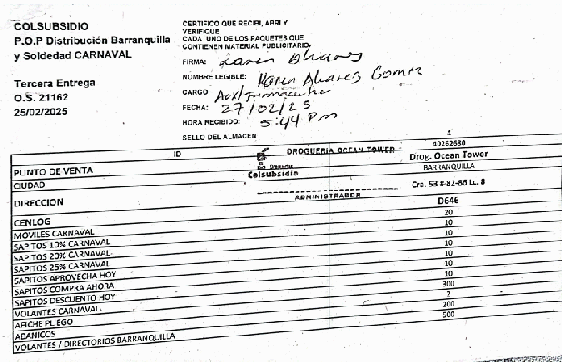 COLSUBSIDIO
P.O.P Distribución Barranquilla
y Soldedad CARNAVAL
Tercera Entrega
O.S. 21162
25/02/2025
CERTIFICO QUE RECIBI, ABRI Y
VERIFIQUE
CADA UNO DE LOS PAQUETES QUE
CONTIENEN MATERIAL PUBLICITARIO.
FIRMA:
NOMBRE LEGIBLE: Karen Alvares Gomez
CARGO
FECHA: 27/02/25
HORA RECIBIDO: 5:44 Pm
SELLO DEL ALMACEN
DROGUERIA OCEAN TOWER
Colsubsidio
ADMINISTRADOR
ID
PUNTO DE VENTA Drog. Ocean Tower
CIUDAD BARRANQUILLA
DIRECCION
CENLOG D646
MOVILES CARNAVAL 20
SAPITOS 10% CARNAVAL 10
SAPITOS 20% CARNAVAL 10
SAPITOS 25% CARNAVAL 10
SAPITOS APROVECHA HOY 10
SAPITOS COMPRA AHORA 10
SAPITOS DESCUENTO HOY 10
VOLANTES CARNAVAL 300
AFICHE PLIEGO
ABANICOS 200
VOLANTES / DIRECTORIOS BARRANQUILLA 500